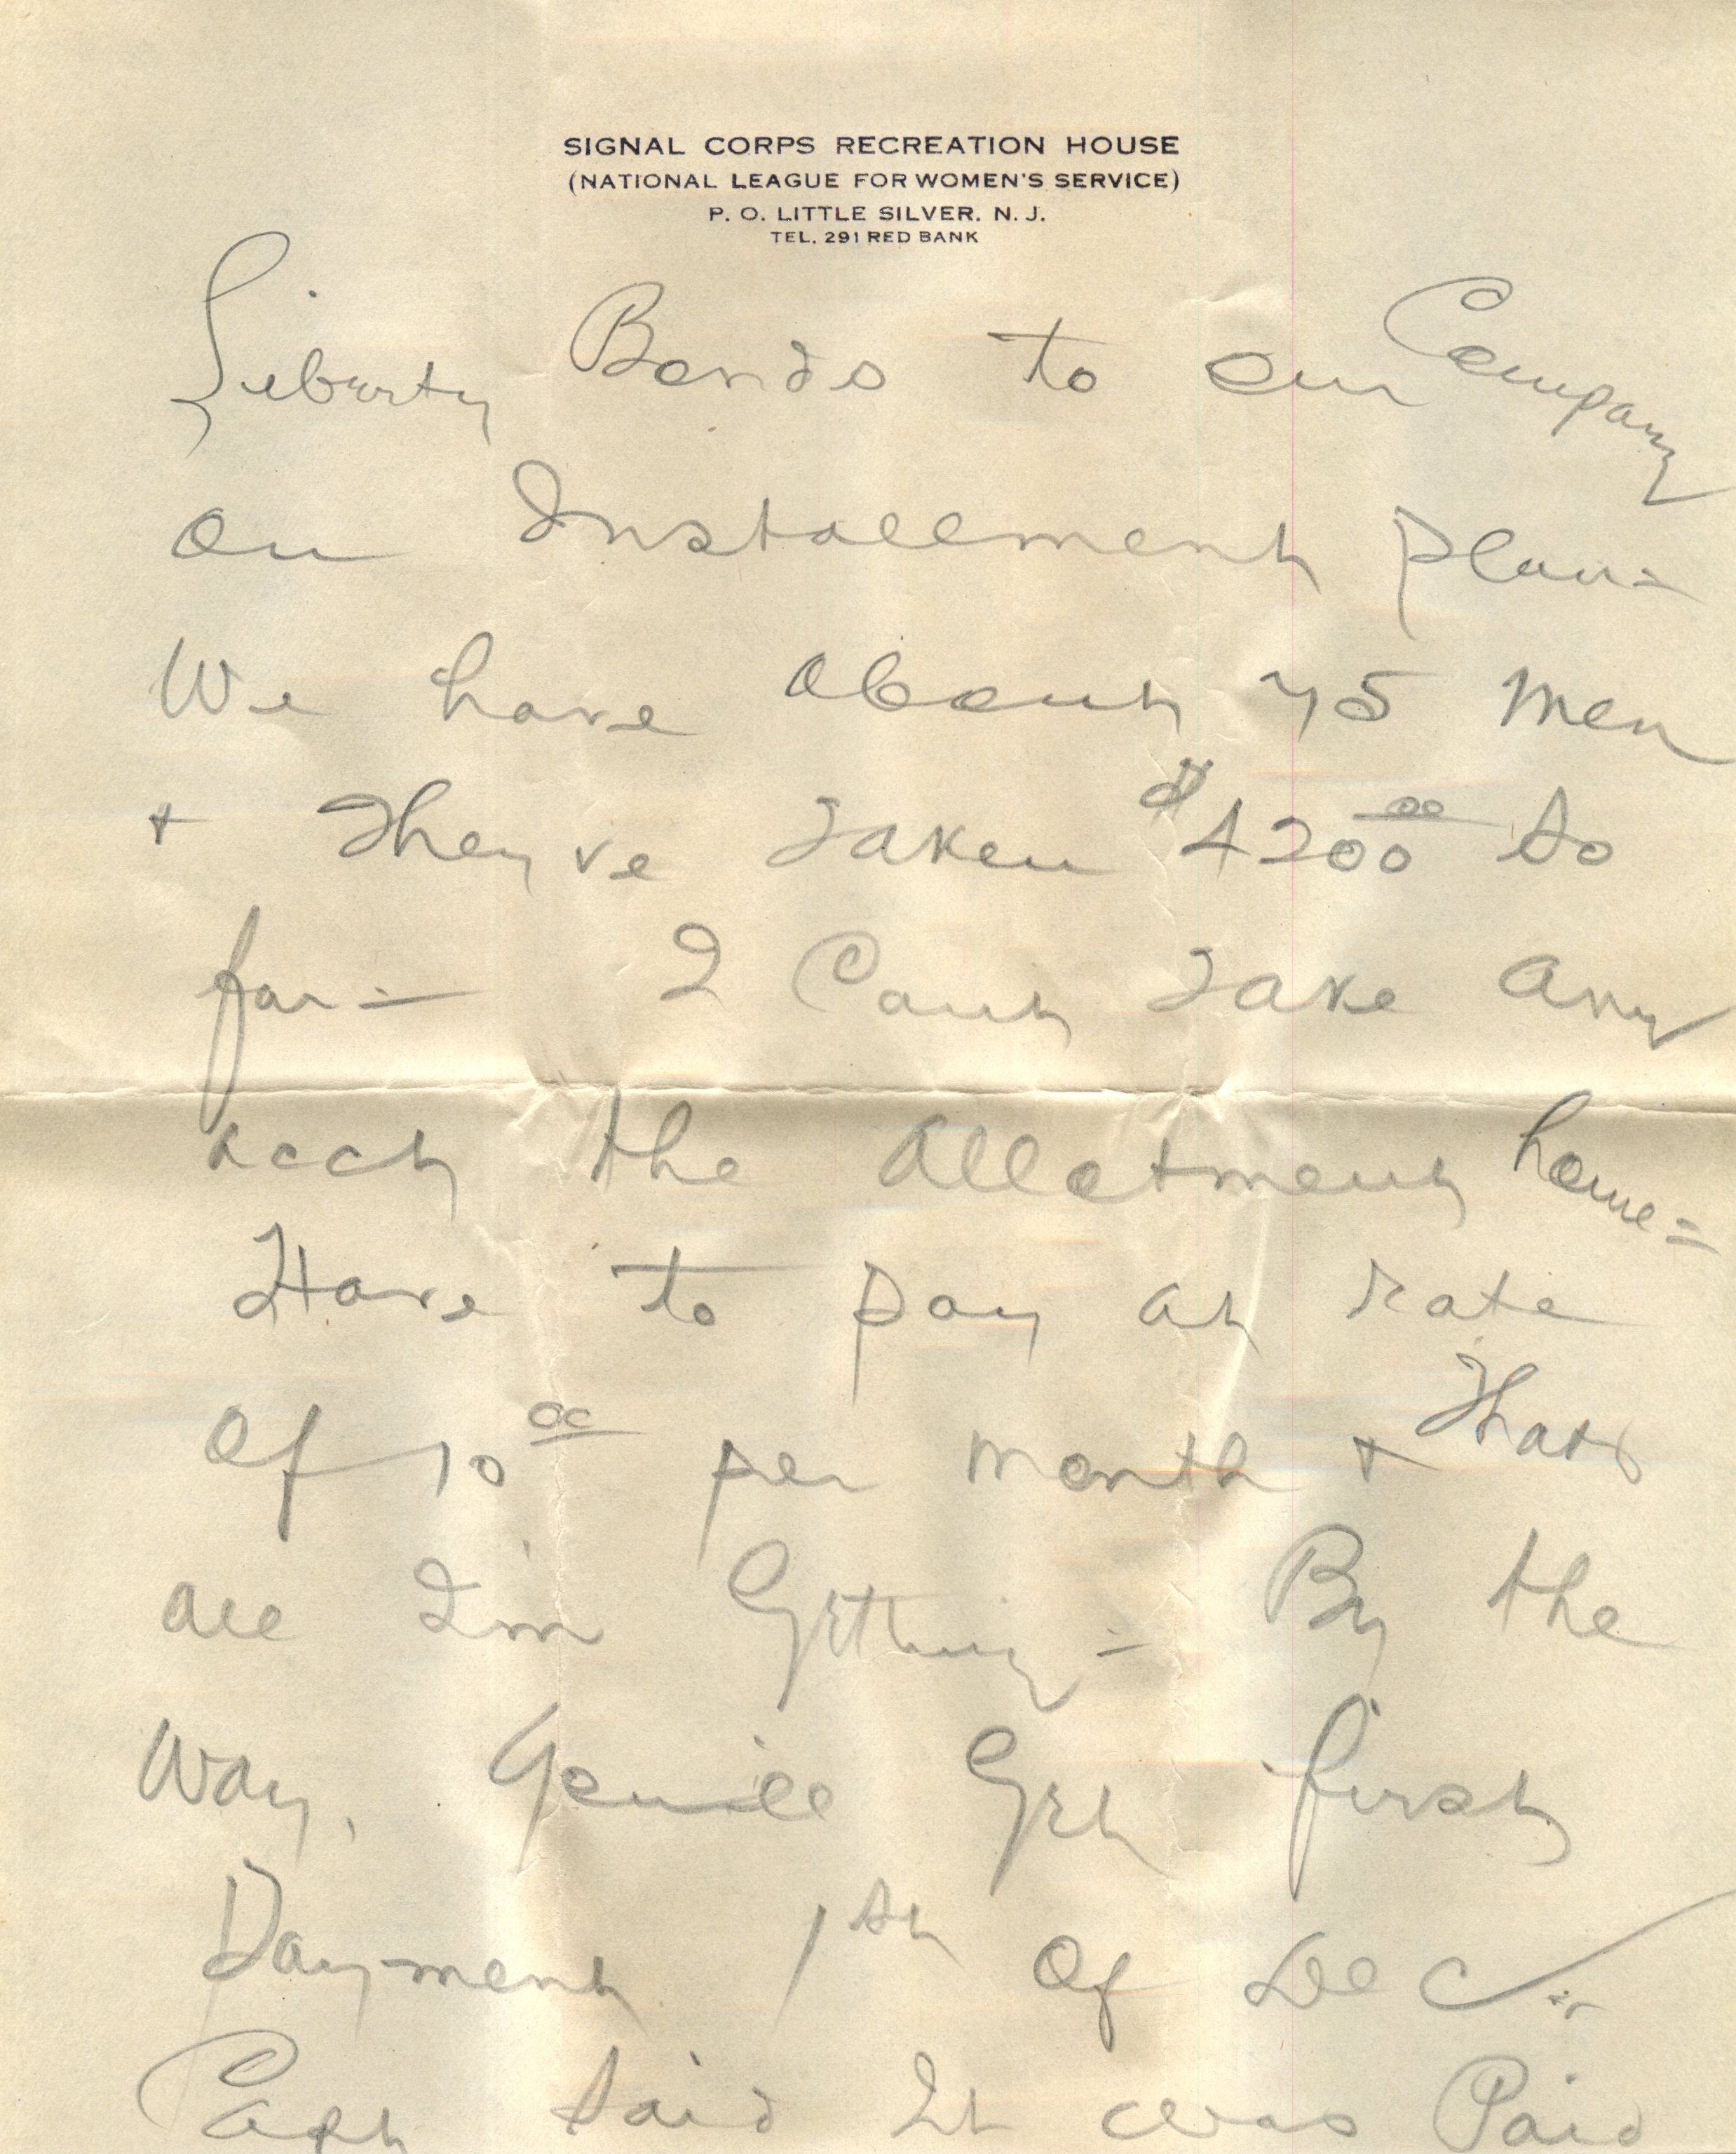 SIGNAL CORPS RECREATION HOUSE
(NATIONAL LEAGUE FOR WOMEN'S SERVICE)
P. O. LITTLE SILVER. N. J.
TEL. 291 RED BANK
Liberty Bonds to our Company
on Installment plan=
We have about 75 men
+ They've Taken $4200.00 so
far= I Cant Take any
acct the allotment home=
Have to pay at rate
of 10.00 per month + Thats
all I'm Getting= By the
Way, You'll Get first
Payment 1st of Dec=
Capt said It was Paid